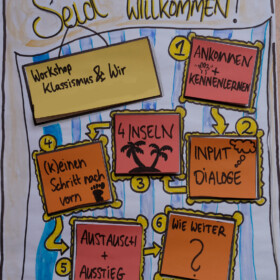 Seid WILLKOMMEN!
Workshop
Klassismus & Wir
1
ANKOMMEN
+
KENNENLERNEN
2
INPUT
DIALOGE
3
4 INSELN
4
(k)einen
Schritt nach
vorn
5
AUSTAUSCH
+
AUSSTIEG
6
WIE WEITER
?